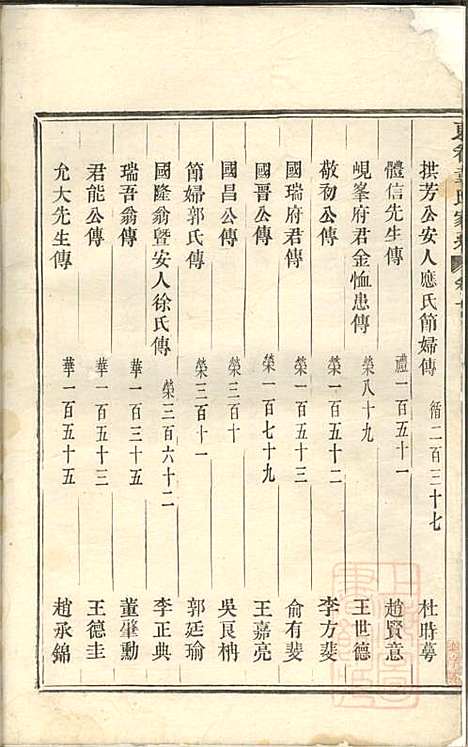 拱芳公安人應氏節婦傳 循二百三十七 杜時萼
體信先生傳 禮一百五十一 趙賢意
峴峯府君金恤患傳 榮八十九 王世德
敬初公傳 榮一百五十二 李方蓁
國瑞府君傳 榮一百五十三 俞有斐
國晉公傳 榮一百七十九 王嘉亮
國昌公傳 榮三百十 吳良枘
節婦郭氏傳 榮三百十一 郭廷瑜
國隆翁暨安人徐氏傳 榮三百六十二 李正典
瑞吾翁傳 華一百三十五 董肇勳
君能公傳 華一百五十三 王德圭
允大先生傳 華一百五十五 趙承錦